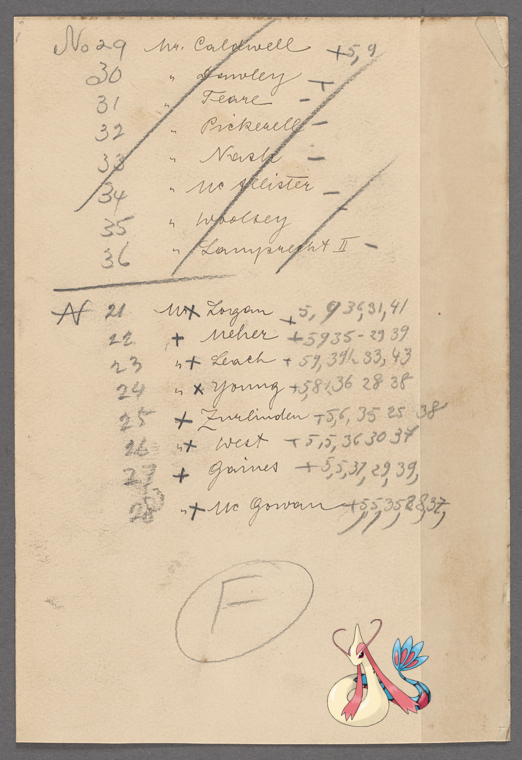 No 29 Mr. Caldwell +5,9
30 " Dawley +
31 " Feare -
32 " Pickerell -
33 " Nash -
34 " McAllister -
35 " Woolsey -
36 " Lamprecht II -
N 21 Mr + Logan +5, 9 36,31,41
22 + Neher +5935-29 39
23 " + Leach + 59, 33, 43
24 " x Young +5, 36 28 38
25 + Zurlinden +5,6, 35 25 38
26 " + West +5,5, 36 30 37
27 + Gaines +5,5,37,29,39,
28 " + McGowan +5,5,35,28,37,
F